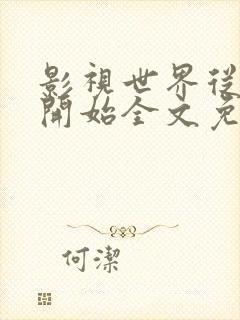 影視世界從
開始全文免
何潔